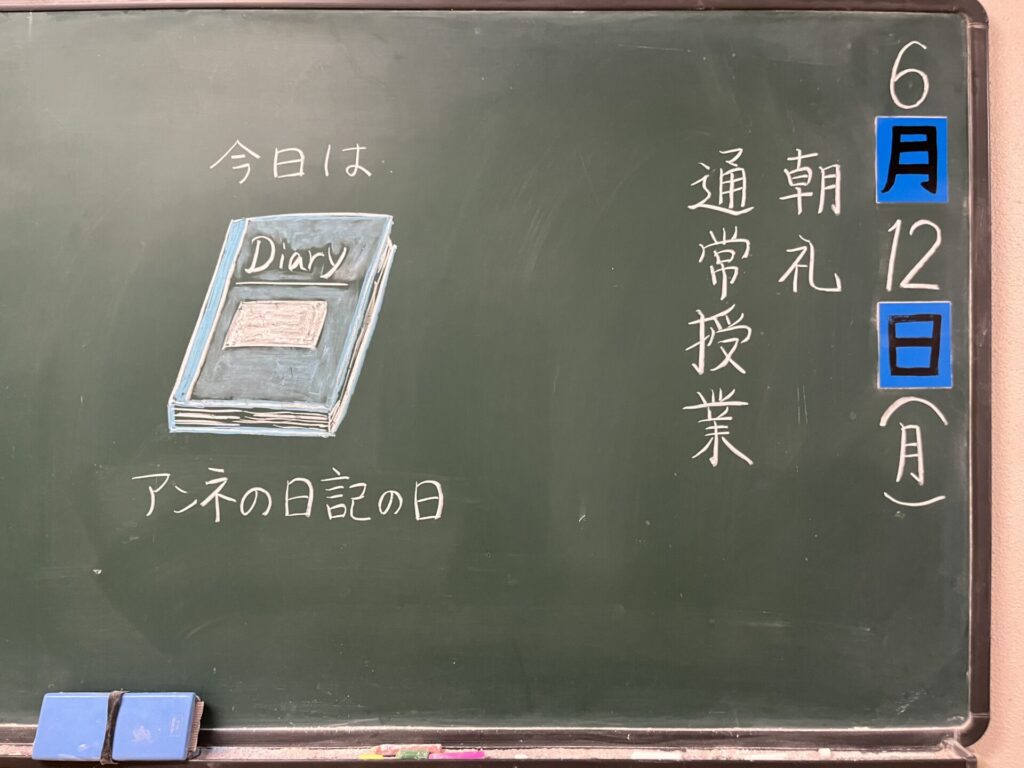 6月12日(月)
朝礼
通常授業
今日は
Diary
アンネの日記の日